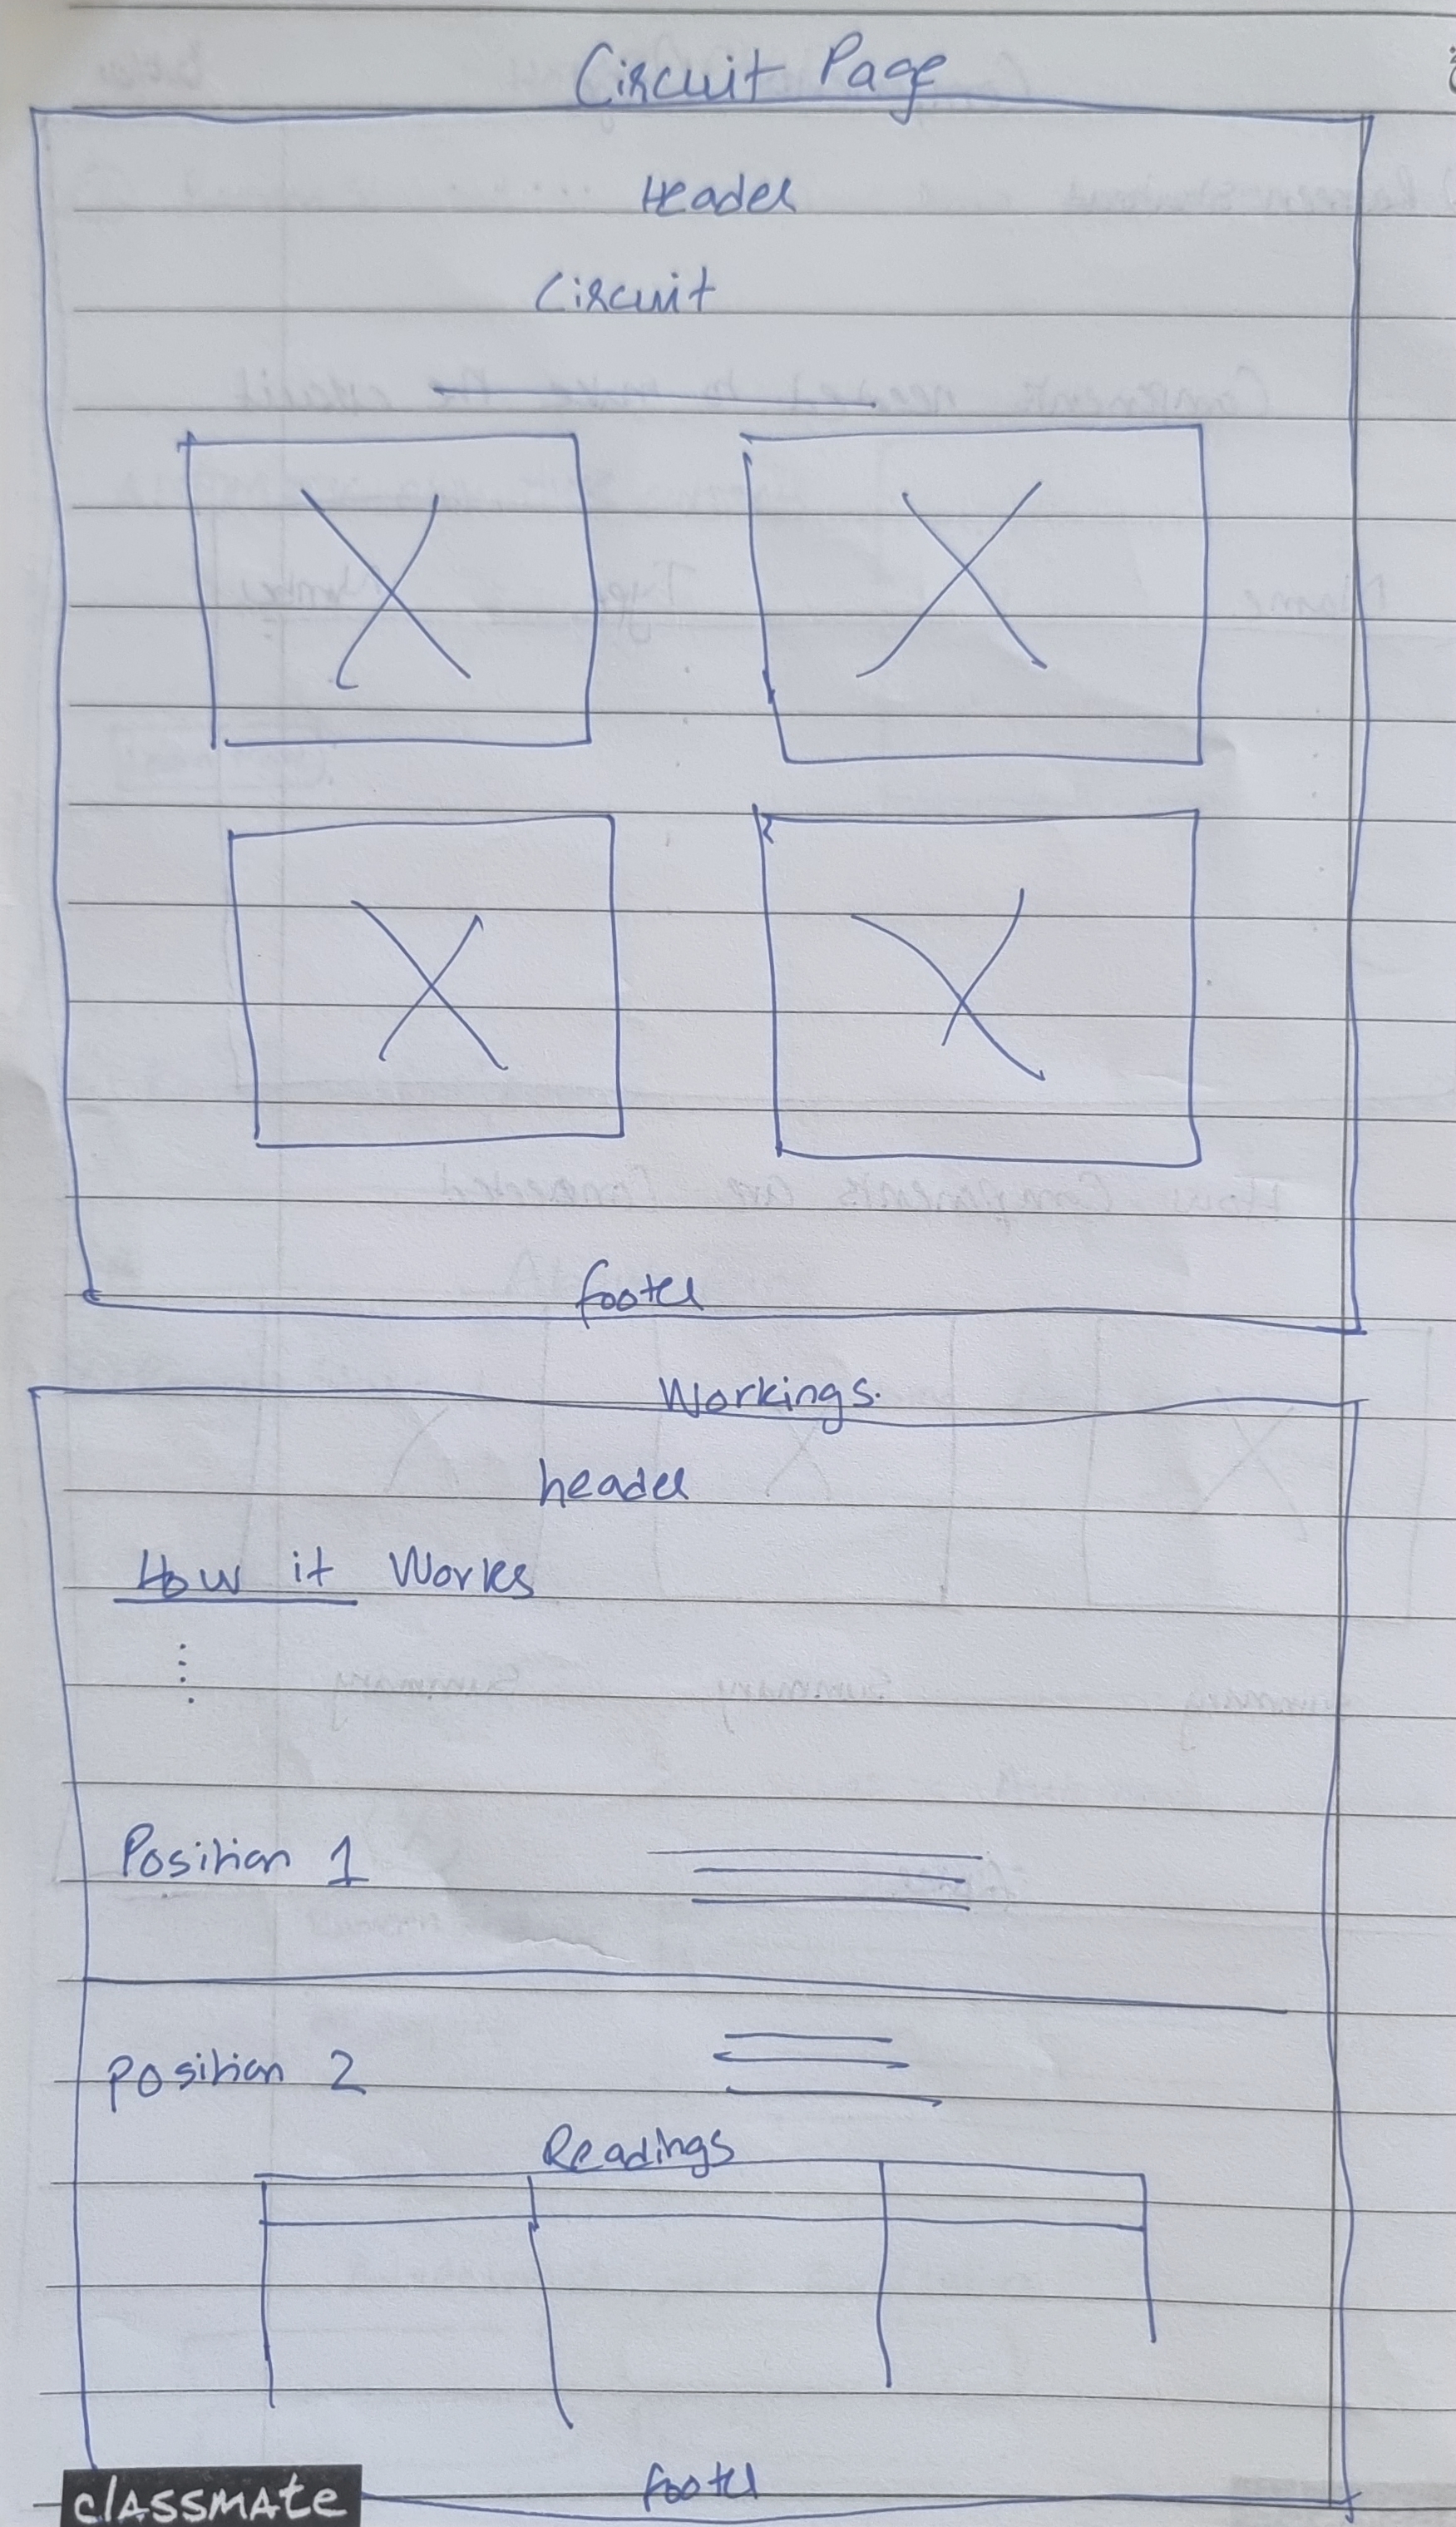 Circuit Page
Header
Circuit
Footer
Workings.
header
How it Works
Position 1
Position 2
Readings
footer
classmate